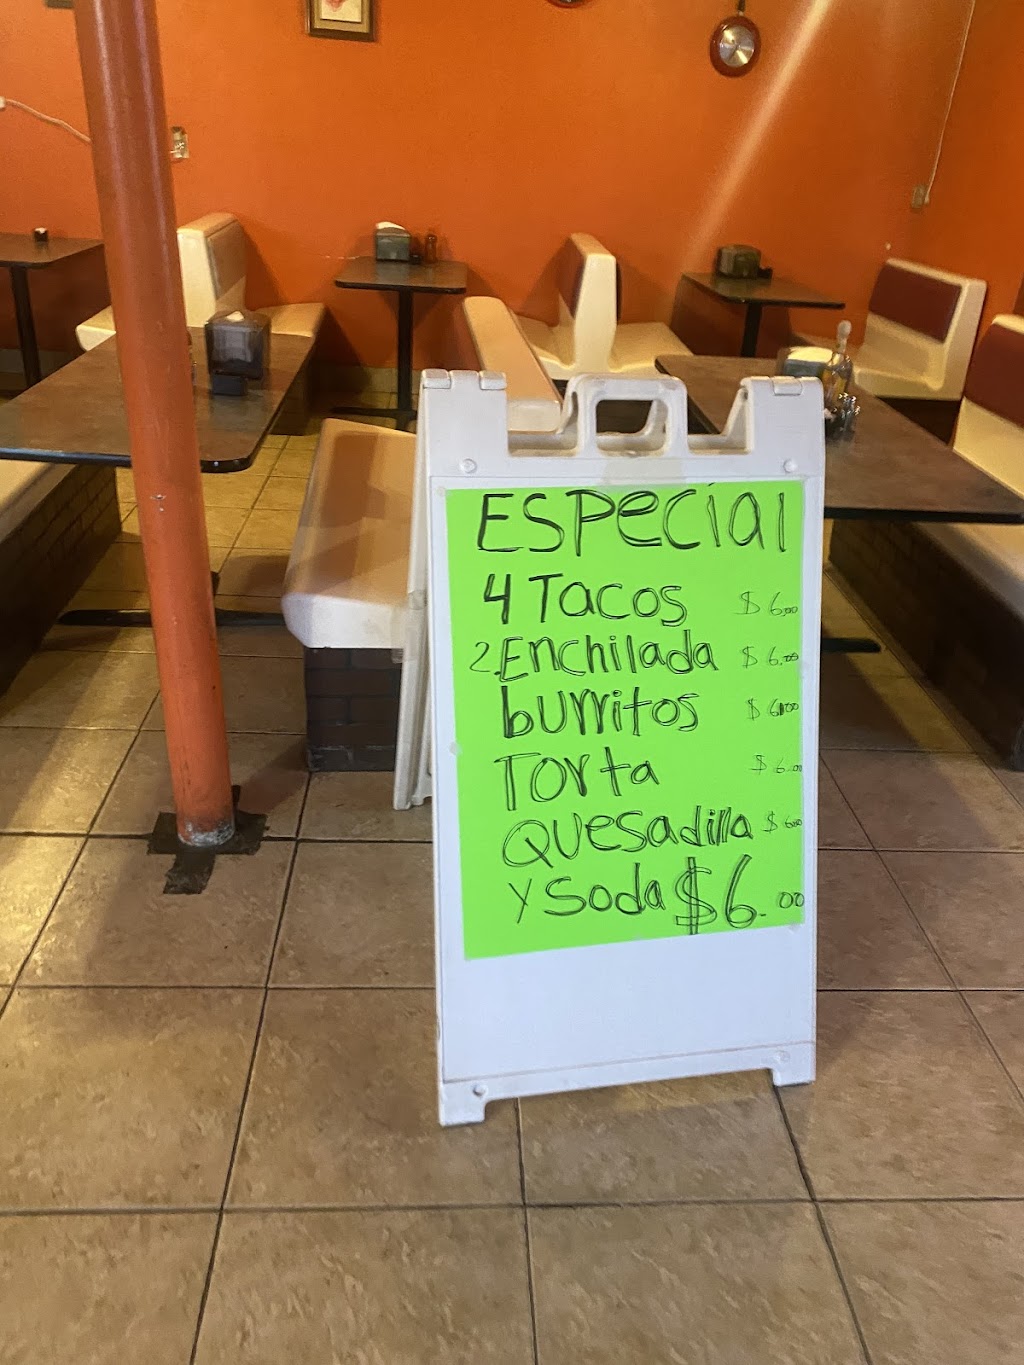 ESPecial
4 Tacos $6.00
2. Enchilada $6.00
burritos $6.00
Torta $6.00
Quesadilla $6.00
y Soda $6.00